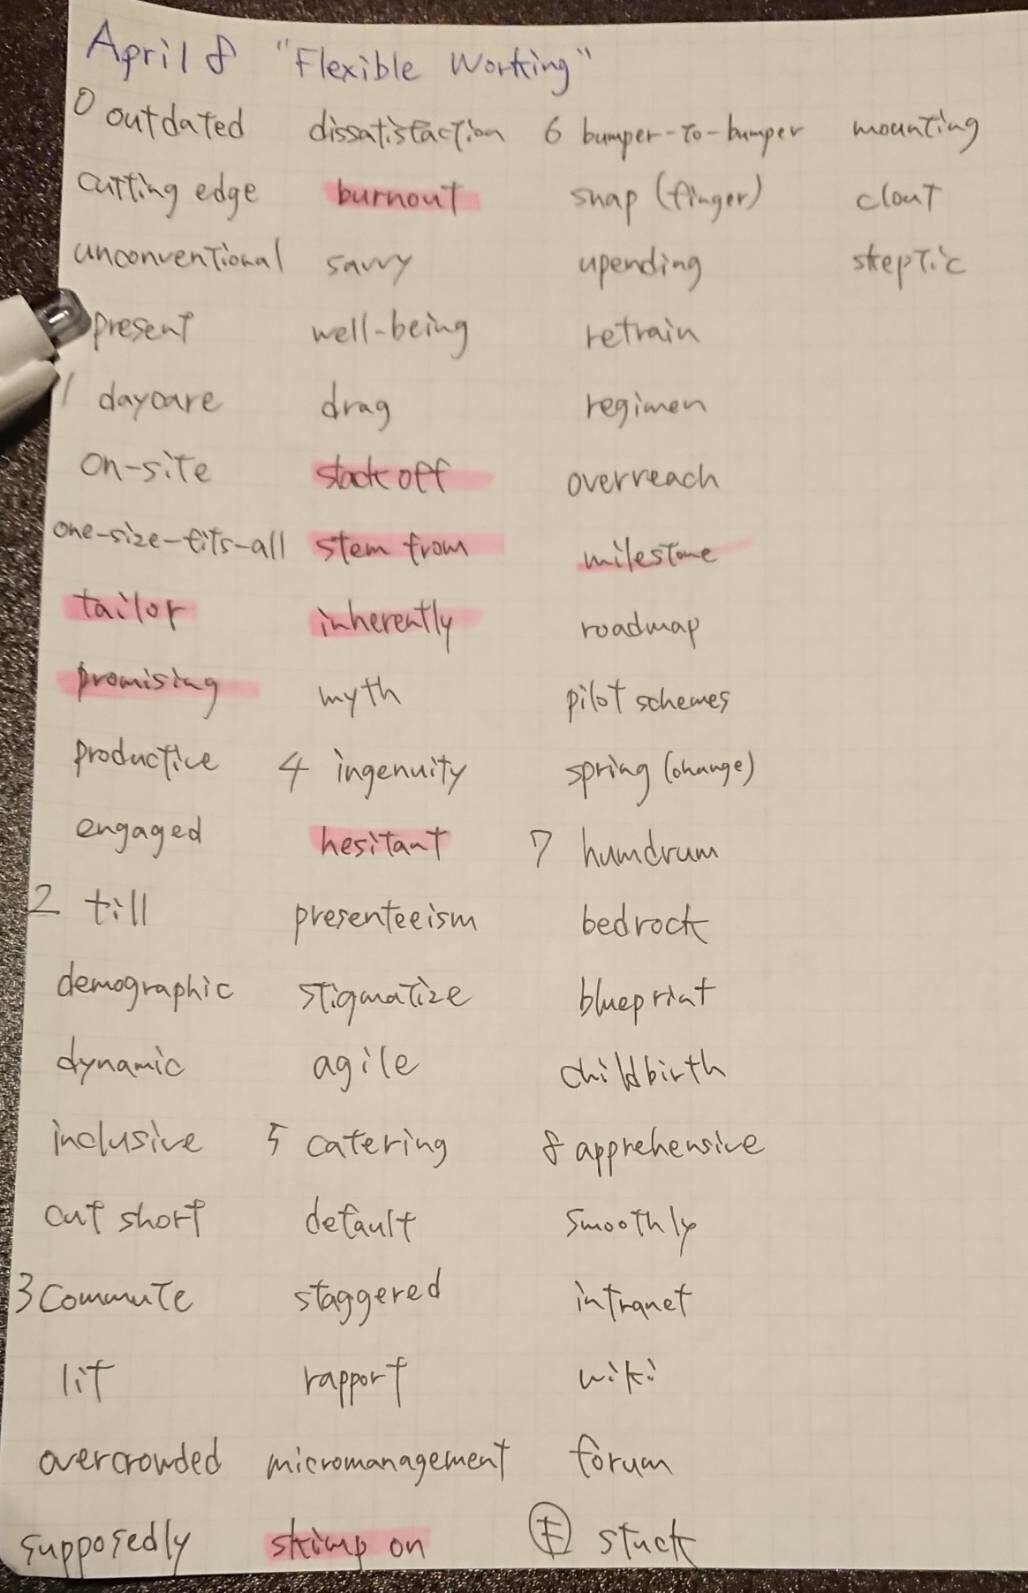 April 8 "Flexible Working"
0 outdated
cutting edge
unconventional
present
1 daycare
on-site
one-size-fits-all
tailor
promising
productive
engaged
2 till
demographic
dynamic
inclusive
cut short
3 commute
lit
overcrowded
supposedly
dissatisfaction
burnout
savvy
well-being
drag
slack off
stem from
inherently
myth
4 ingenuity
hesitant
presenteeism
stigmatize
agile
5 catering
default
staggered
rapport
micromanagement
skimp on
6 bumper-to-bumper
snap (finger)
upending
retrain
regimen
overreach
milestone
roadmap
pilot schemes
spring (change)
7 humdrum
bedrock
blueprint
childbirth
8 apprehensive
smoothly
intranet
wiki
forum
E stuck
mounting
clout
skeptic